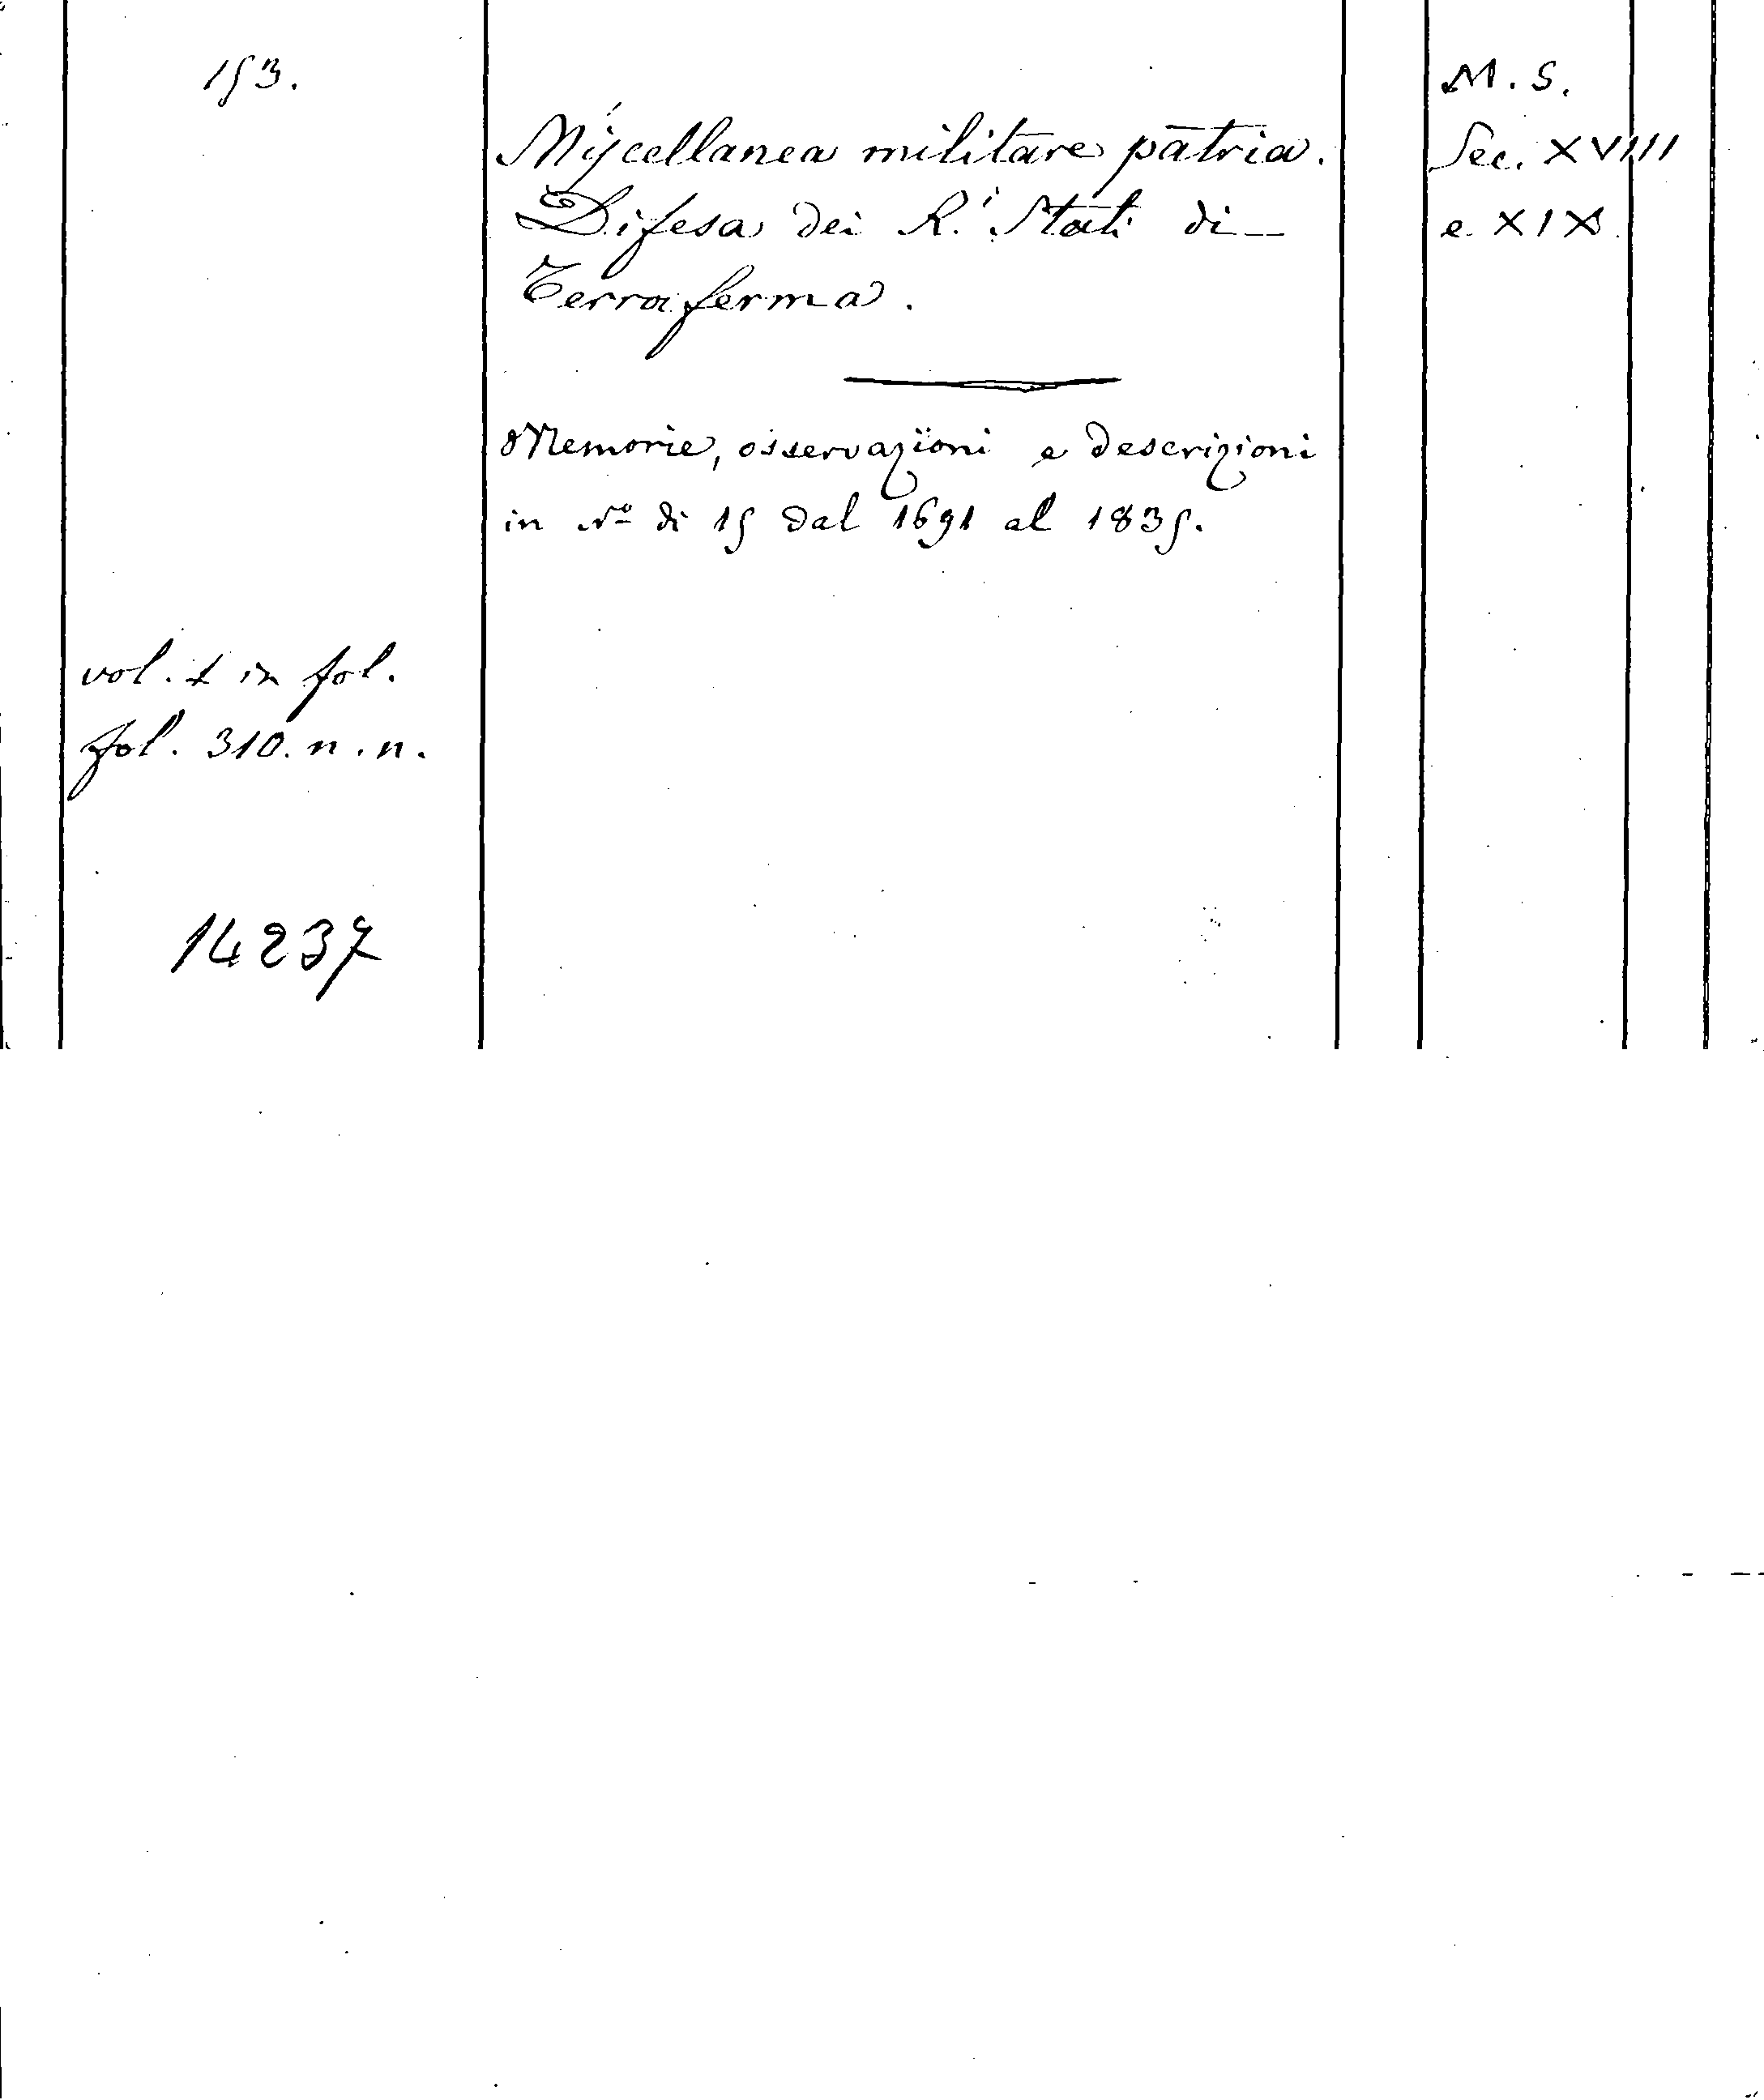 153.
Miscellanea militare patria.
Difesa dei R.i Stati di
Terraferma.
Memorie, osservazioni e descrizioni
in Nº di 15 dal 1691 al 1835.
vol. 1 in fol.
fol. 310. n. n.
14237
M. S.
Sec. XVIII
e XIX.